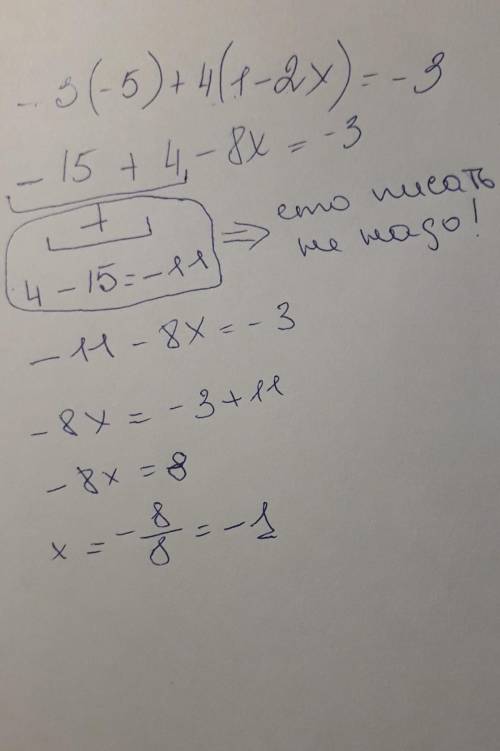 - 3(-5)+4(1-2x)=-3
-15+4-8x=-3
+
4-15=-11
=> ето писать
не надо!
-11-8x=-3
-8x=-3+11
-8x=8
x=-8/8=-1